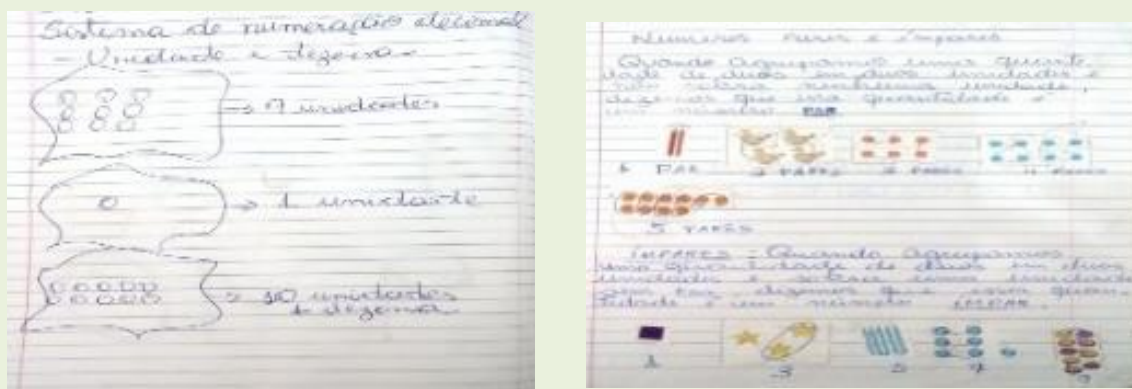 Sistema de numeração decimal
- Unidade e dezena -
→ 9 unidades
→ 1 unidade
→ 10 unidades
1 dezena
Números pares e ímpares
Quando agrupamos uma quanti
dade de duas em duas unidades e
não sobra nenhuma unidade,
dizemos que essa quantidade é
um número PAR.
1 PAR
2 PARES
3 PARES
4 PARES
5 PARES
ÍMPARES = Quando agrupamos
uma quantidade de duas em duas
unidades e sobra uma unidade
sem par, dizemos que essa quan-
tidade é um número ÍMPAR.
1
3
5
7
9